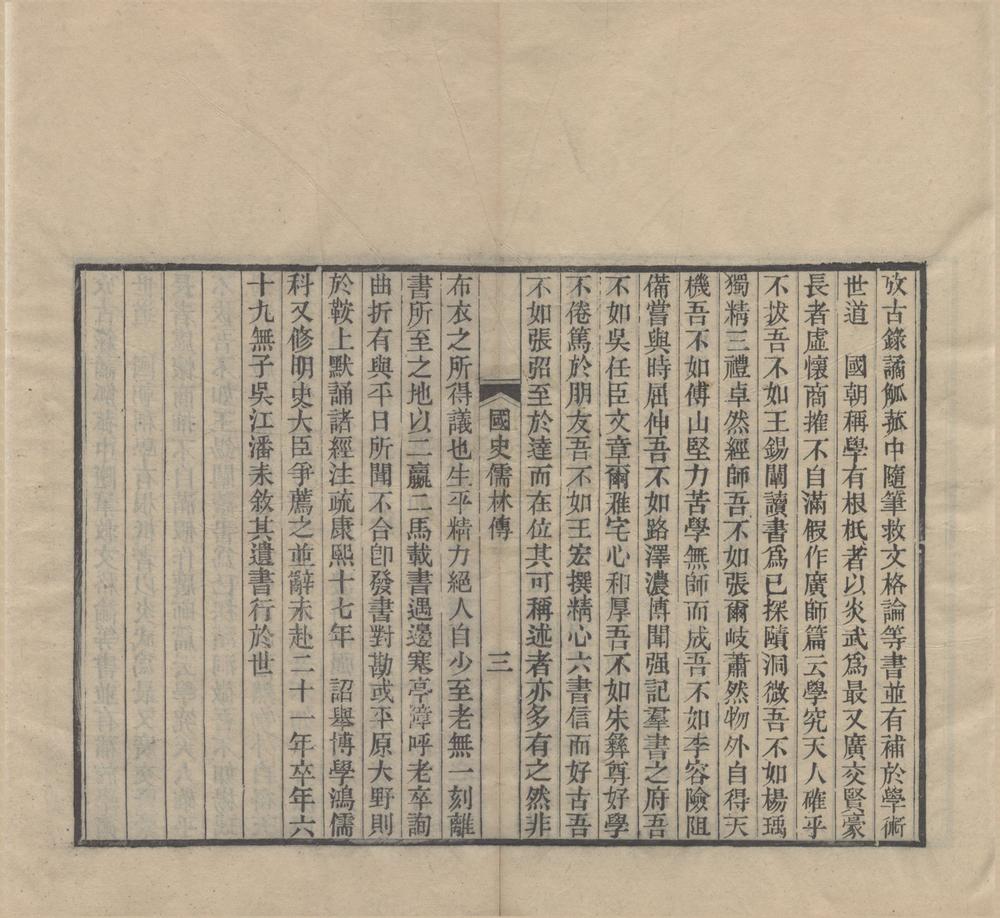 攷古錄譎觚菰中隨筆救文格論等書並有補於學術
世道　國朝稱學有根柢者以炎武爲最又廣交賢豪
長者虛懷商搉不自滿假作廣師篇云學究天人確乎
不拔吾不如王錫闡讀書爲已探賾洞微吾不如楊瑀
獨精三禮卓然經師吾不如張爾岐蕭然物外自得天
機吾不如傅山堅力苦學無師而成吾不如李容險阻
備嘗與時屈伸吾不如路澤濃博聞强記羣書之府吾
不如吳任臣文章爾雅宅心和厚吾不如朱彝尊好學
不倦篤於朋友吾不如王宏撰精心六書信而好古吾
不如張弨至於達而在位其可稱述者亦多有之然非
國史儒林傳　三
布衣之所得議也生平精力絕人自少至老無一刻離
書所至之地以二驘二馬載書遇邊塞亭漳呼老卒詢
曲折有與平日所聞不合卽發書對勘或平原大野則
於鞍上默誦諸經注疏康熙十七年　詔舉博學鴻儒
科又修明史大臣爭薦之並辭未赴二十一年卒年六
十九無子吳江潘耒敘其遺書行於世